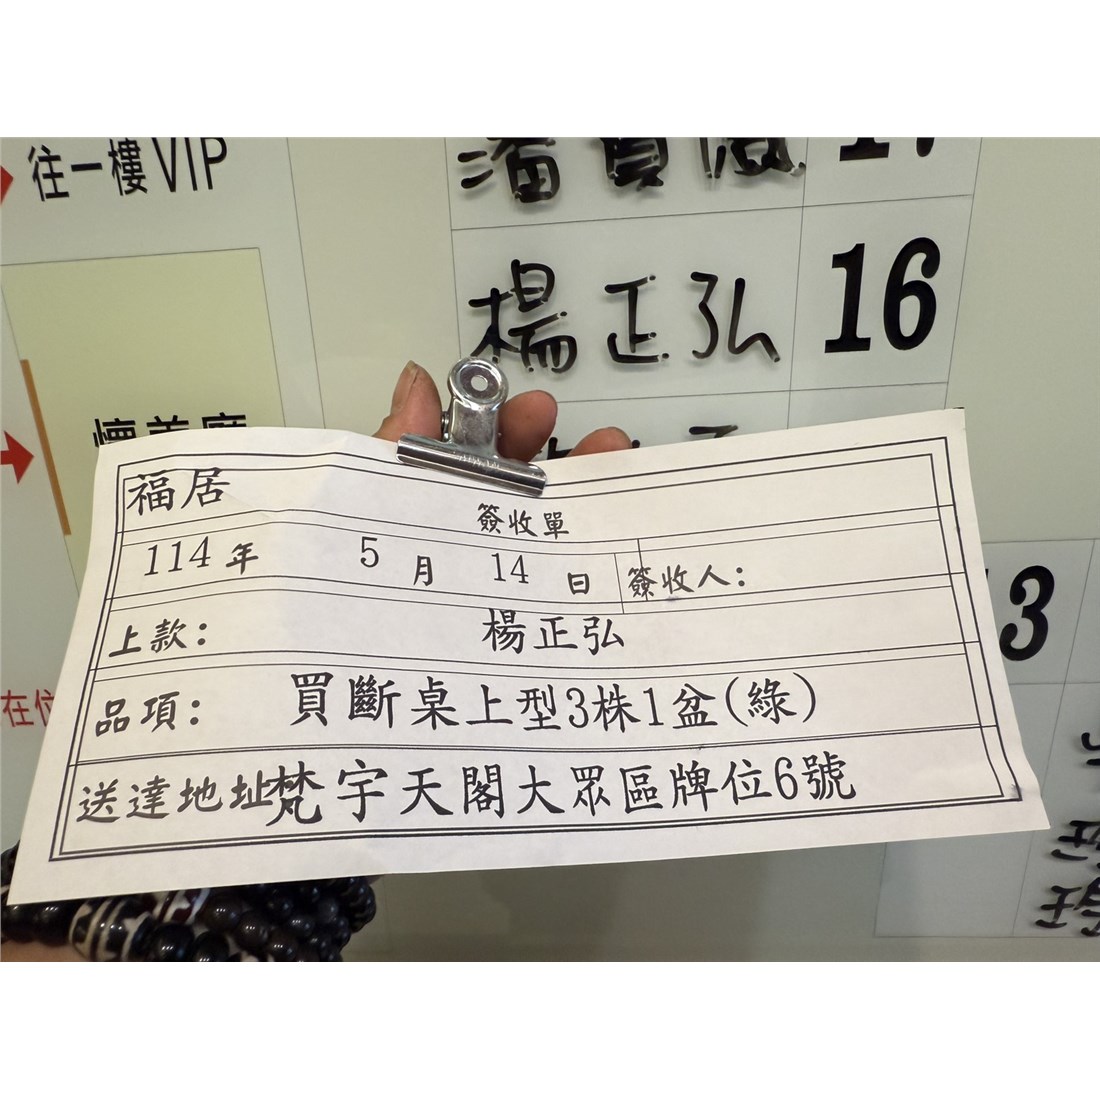 往一樓 VIP
楊正弘 16
福居
簽收單
114 年 5 月 14 日 簽收人：
上款： 楊正弘
品項： 買斷桌上型3株1盆(綠)
送達地址梵宇天閣大眾區牌位6號
3
在位